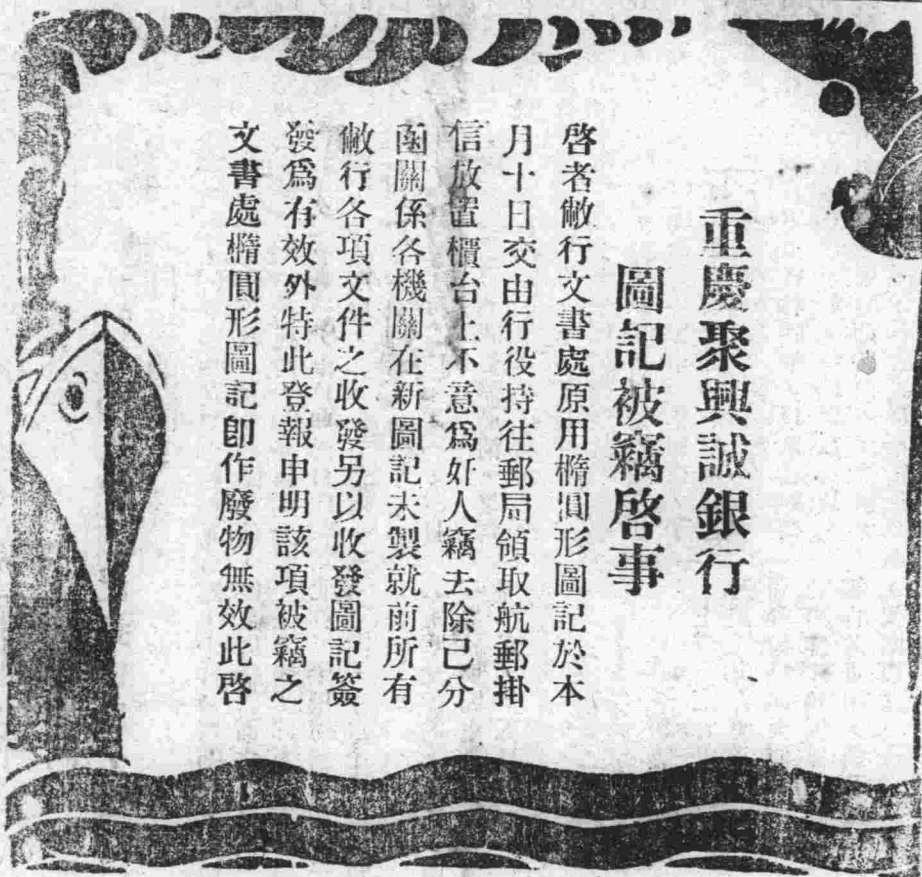 重慶聚興誠銀行
圖記被竊啓事
啓者敝行文書處原用橢圓形圖記於本
月十日交由行役持往郵局領取航郵掛
信放置櫃台上不意爲奸人竊去除已分
函關係各機關在新圖記未製就前所有
敝行各項文件之收發另以收發圖記簽
發爲有效外特此登報申明該項被竊之
文書處橢圓形圖記卽作廢物無效此啓